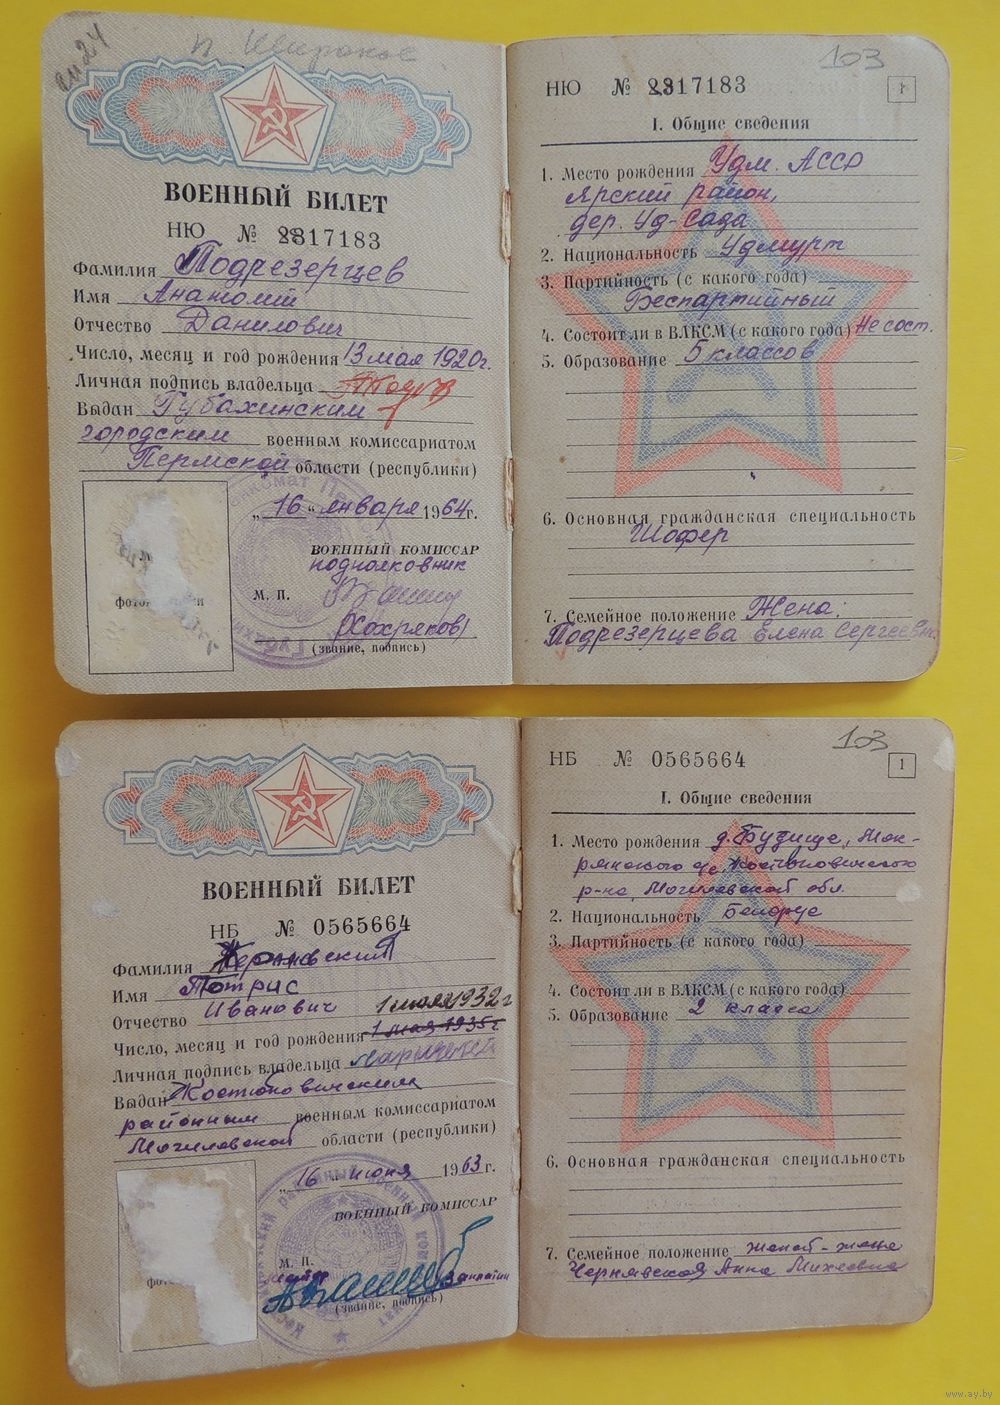 п. Широкое
103
ВОЕННЫЙ БИЛЕТ
НЮ № 2317183
Фамилия Подрезерцев
Имя Анатолий
Отчество Данилович
Число, месяц и год рождения 13 мая 1920г.
Личная подпись владельца
Выдан Губахинским
городским военным комиссариатом
Пермской области (республики)
„16“ января 1964г.
ВОЕННЫЙ КОМИССАР
подполковник
М. П.
(Хохряков)
(звание, подпись)
НЮ № 2317183
1
I. Общие сведения
1. Место рождения Удм. АССР
Ярский район,
дер. Уд-Сада
2. Национальность Удмурт
3. Партийность (с какого года)
Беспартийный
4. Состоит ли в ВЛКСМ (с какого года) Не сост.
5. Образование 5 классов
6. Основная гражданская специальность
Шофер
7. Семейное положение Жена:
Подрезерцева Елена Сергеевна
ВОЕННЫЙ БИЛЕТ
НБ № 0565664
Фамилия
Имя
Отчество Иванович 1 мая 1932 г
Число, месяц и год рождения 1 мая 1935г
Личная подпись владельца
Выдан Костюковическим
районным военным комиссариатом
Могилевской области (республики)
„16“ июня 1963г.
ВОЕННЫЙ КОМИССАР
М. П.
(звание, подпись)
103
НБ № 0565664
1
I. Общие сведения
1. Место рождения д. Будище, Мок-
рянского с/с, Костюковичского
р-на, Могилевской обл.
2. Национальность Белорус
3. Партийность (с какого года)
4. Состоит ли в ВЛКСМ (с какого года)
5. Образование 2 класса
6. Основная гражданская специальность
7. Семейное положение женат - жена
Чернявская Анна Михеевна
www.ay.by